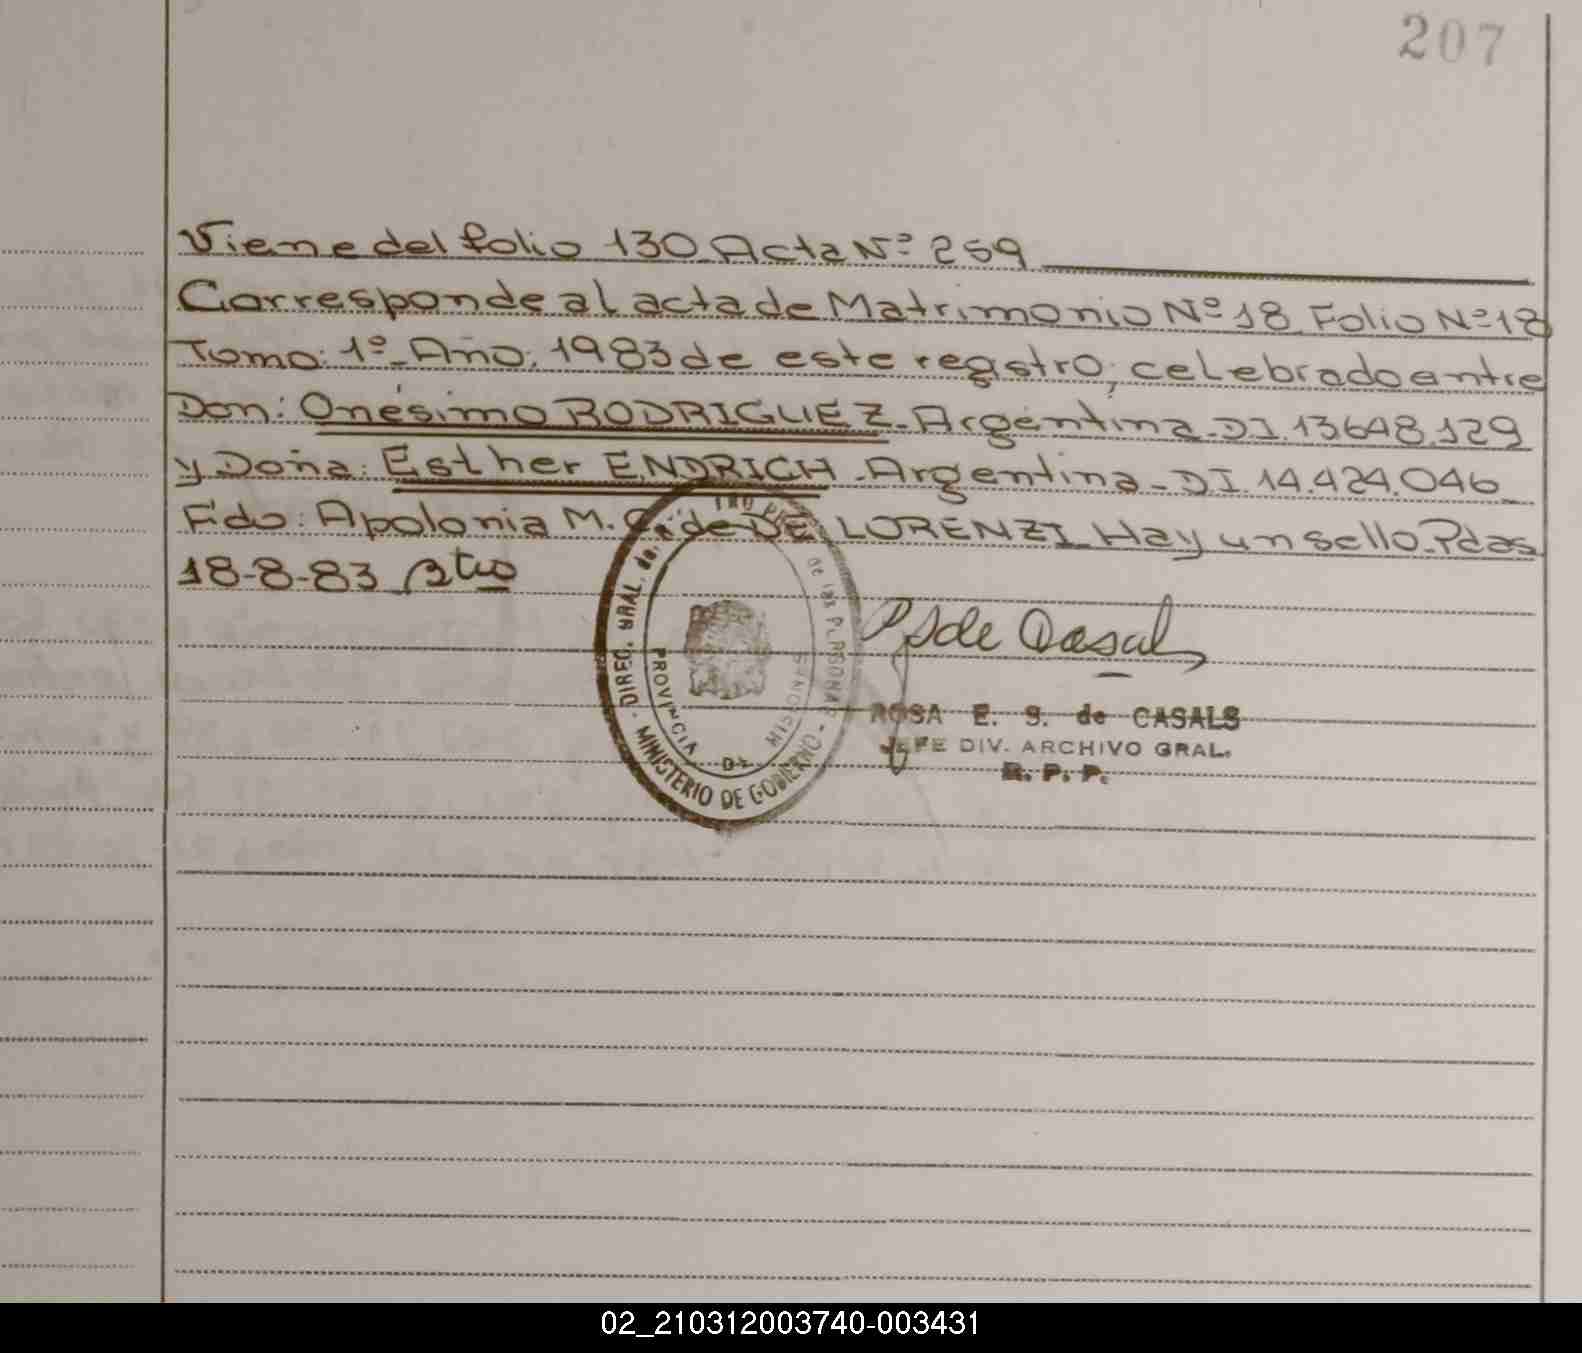 207
Viene del folio 130 Acta Nº 259
Corresponde al acta de Matrimonio Nº 18 Folio Nº 18
Tomo: 1º- Año: 1983 de este registro; celebrado entre
Don: Onésimo RODRIGUEZ- Argentina - DI. 13648.129
y Doña: Esther ENDRICH - Argentina - DI. 14.424.046
Fdo: Apolonia M. C. de DE LORENZI Hay un sello. Pdas
18-8-83
DIREC. GRAL. de las PERSONAS - MINISTERIO DE GOBIERNO -
PROVINCIA DE MISIONES
de Casals
ROSA E. S. de CASALS
JEFE DIV. ARCHIVO GRAL.
R. P. P.
02_210312003740-003431